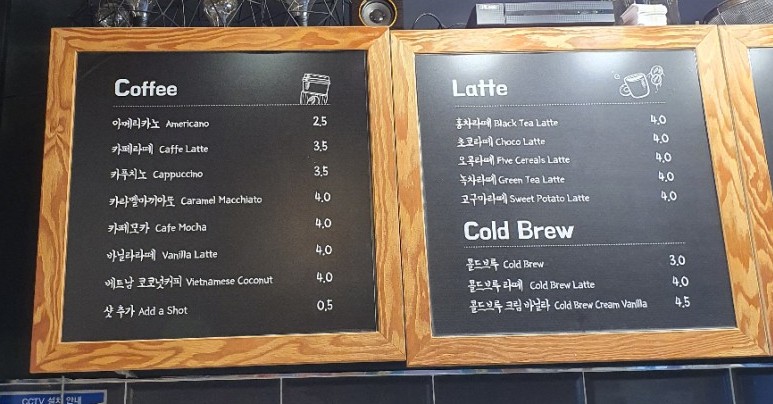 Coffee
아메리카노 Americano 2.5
카페라떼 Caffe Latte 3.5
카푸치노 Cappuccino 3.5
카라멜마끼아또 Caramel Macchiato 4.0
카페모카 Cafe Mocha 4.0
바닐라라떼 Vanilla Latte 4.0
베트남 코코넛커피 Vietnamese Coconut 4.0
샷 추가 Add a Shot 0.5
Latte
홍차라떼 Black Tea Latte 4.0
초코라떼 Choco Latte 4.0
오곡라떼 Five Cereals Latte 4.0
녹차라떼 Green Tea Latte 4.0
고구마라떼 Sweet Potato Latte 4.0
Cold Brew
콜드브루 Cold Brew 3.0
콜드브루 라떼 Cold Brew Latte 4.0
콜드브루 크림 바닐라 Cold Brew Cream Vanilla 4.5
CCTV 설치 안내